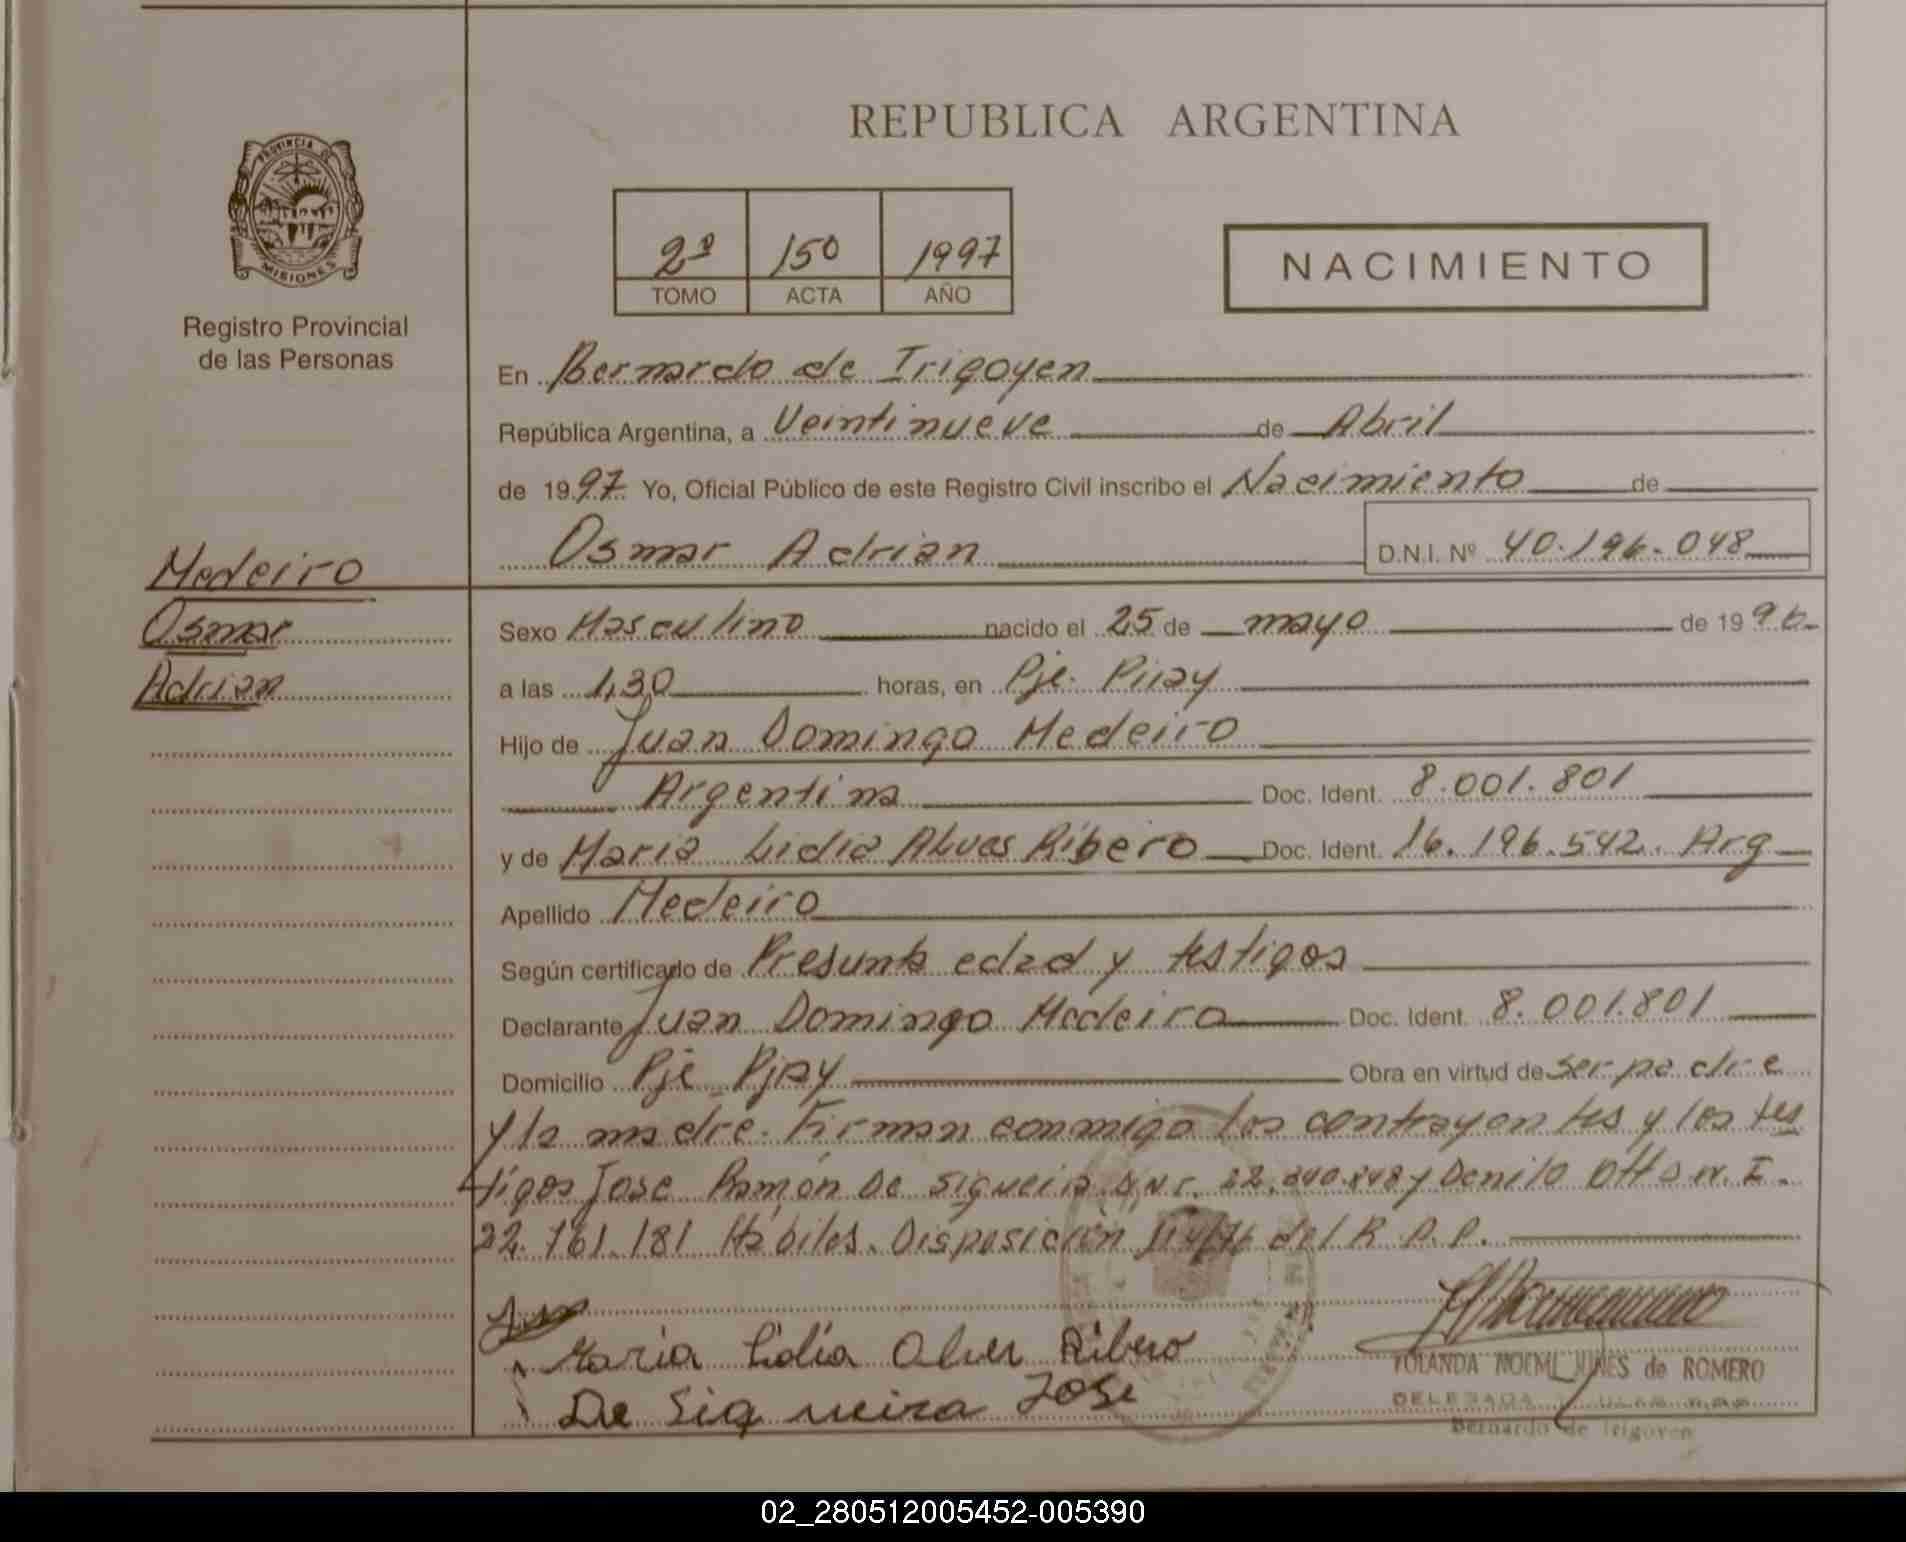 REPUBLICA ARGENTINA
PROVINCIA DE
MISIONES
Registro Provincial
de las Personas
2º 150 1997
TOMO ACTA AÑO
NACIMIENTO
En Bernardo de Irigoyen
República Argentina, a Veintinueve de Abril
de 1997 Yo, Oficial Público de este Registro Civil inscribo el Nacimiento de
Osmar Adrian D.N.I. Nº 40.196.048
Medeiro
Osmar
Adrian
Sexo Masculino nacido el 25 de mayo de 1996
a las 1,30 horas, en Pje. Piray
Hijo de Juan Domingo Medeiro
Argentina Doc. Ident. 8.001.801
y de Maria Lidia Alves Ribero Doc. Ident. 16.196.542. Arg
Apellido Medeiro
Según certificado de Presunta edad y testigos
Declarante Juan Domingo Medeiro Doc. Ident. 8.001.801
Domicilio Pje Piray Obra en virtud de ser padre
y la madre. Firman conmigo los contrayentes y los tes
tigos Jose Ramón De Siqueira y Danilo Otto
22.761.181 Hábiles. Disposición del R.P.P.
Maria Lidia Alves Ribero
De Siqueira Jose
YOLANDA NOEMI NUNES de ROMERO
DELEGADA
Bernardo de Irigoyen
02_280512005452-005390